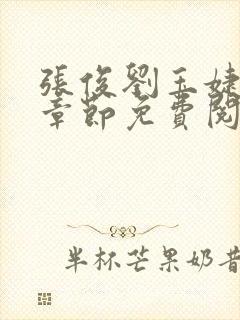 張俊劉玉婕
章節免費閱
半杯芒果奶昔